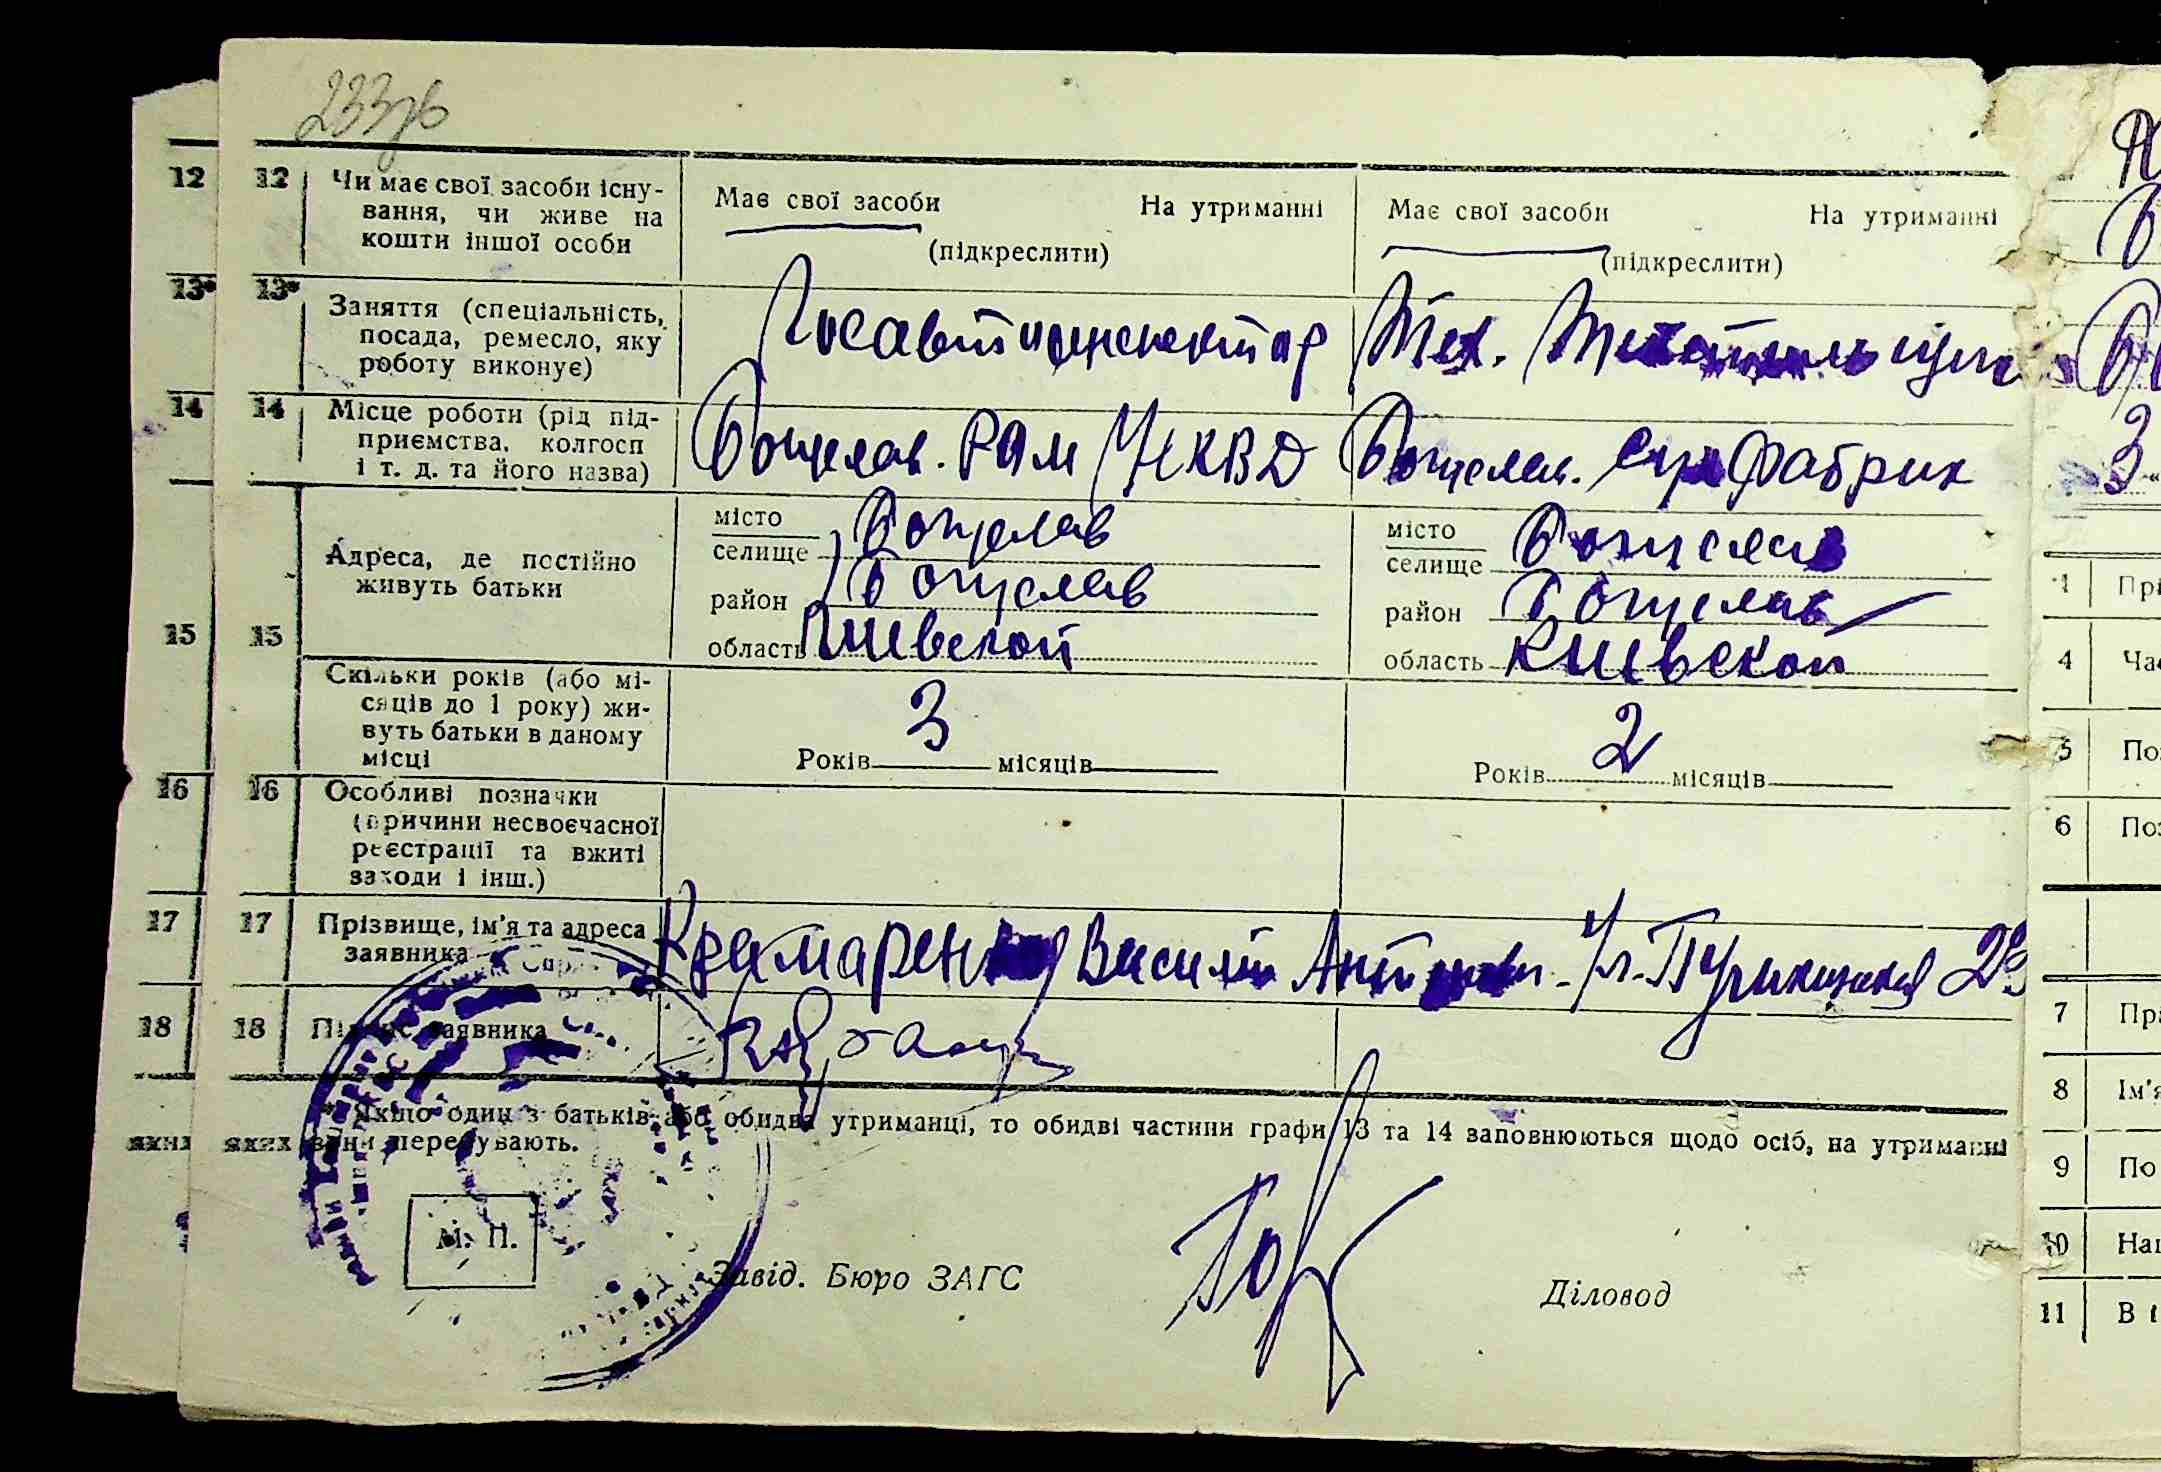 233зв
12 12 Чи має свої засоби існу-
вання, чи живе на
кошти іншої особи
Має свої засоби На утриманні
(підкреслити)
Має свої засоби На утриманні
(підкреслити)
13* 13* Заняття (спеціальність,
посада, ремесло, яку
роботу виконує)
Госавтоинспектор
Тех.
14 14 Місце роботи (рід під-
приємства, колгосп
і т. д. та його назва)
Богуслав. РОМ НКВД
Богуслав. фабрик
15 15 Адреса, де постійно
живуть батьки
місто
селище Богуслав
район Богуслав
область Киевской
місто
селище Богуслав
район Богуслав
область Киевской
Скільки років (або мі-
сяців до 1 року) жи-
вуть батьки в даному
місці
Років 3 місяців
Років 2 місяців
16 16 Особливі позначки
(причини несвоєчасної
реєстрації та вжиті
заходи і інш.)
17 17 Прізвище, ім'я та адреса
заявника
Крамаренко Василий Антонович. Ул. Пушкинская
18 18 Підпис заявника
* Якщо один з батьків або обидва утриманці, то обидві частини графи 13 та 14 заповнюються щодо осіб, на утриманні
яких яких вони перебувають.
М. П.
Завід. Бюро ЗАГС
Діловод
3
1 Прі
4 Час
5 Поз
6 Поз
7 Прі
8 Ім'я
9 По
10 Нац
11 В і